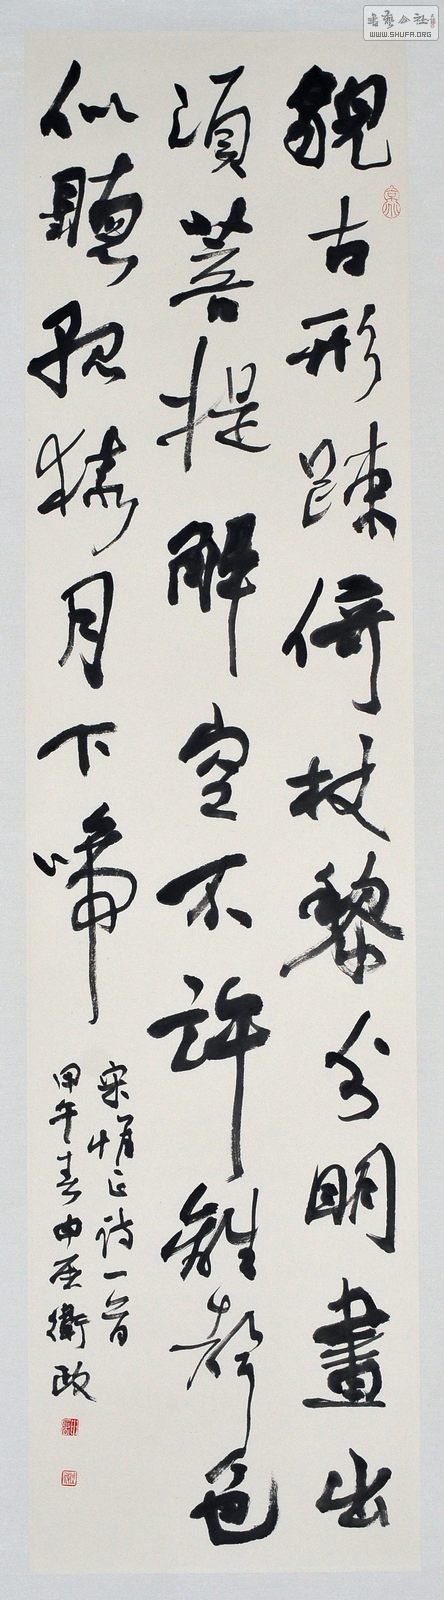 書藝公社
WWW.SHUFA.ORG
貌古形疎倚杖黎分明畫出
須菩提解空不許離聲色
似聽孤猿月下啼
宋惟正詩一首
甲午春衛政